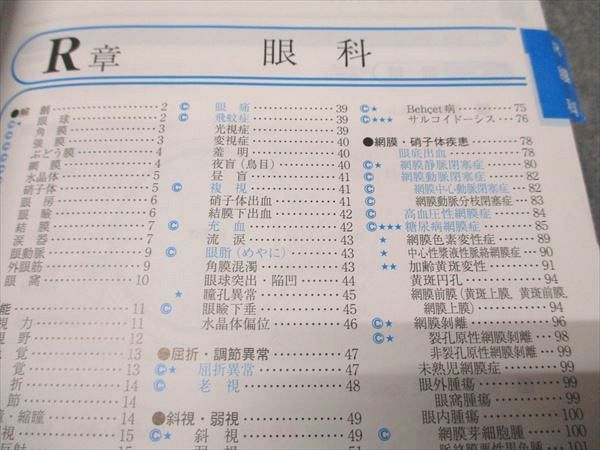 R章 眼科
●解剖 2
眼球 2
角膜 3
強膜 3
ぶどう膜 4
網膜 4
水晶体 5
硝子体 5
眼房 6
眼瞼 6
結膜 7
涙器 7
眼動脈 9
外眼筋 9
眼窩 10
能 11
視力 11
視野 12
覚 13
覚 13
折 14
節 14
・縮瞳 14
視 15
反射
Ⓒ 眼痛 39
Ⓒ 飛蚊症 39
光視症 39
変視症 40
羞明 40
夜盲(鳥目) 40
昼盲 41
Ⓒ 複視 41
硝子体出血 41
結膜下出血 42
Ⓒ 充血 42
流涙 43
Ⓒ 眼脂(めやに) 43
角膜混濁 43
眼球突出・陥凹 44
★ 瞳孔異常 45
Ⓒ 眼瞼下垂 45
水晶体偏位 46
●屈折・調節異常 47
Ⓒ★ 屈折異常 47
Ⓒ 老視 48
●斜視・弱視 49
Ⓒ★ 斜視 49
弱視 51
Ⓒ★ Behçet病 75
Ⓒ★★★ サルコイドーシス 76
●網膜・硝子体疾患 78
眼底出血 78
Ⓒ★ 網膜静脈閉塞症 80
Ⓒ 網膜動脈閉塞症 82
Ⓒ 網膜中心動脈閉塞症 82
Ⓒ 網膜動脈分枝閉塞症 83
Ⓒ 高血圧性網膜症 84
Ⓒ★★★ 糖尿病網膜症 85
★ 網膜色素変性症 89
★ 中心性漿液性脈絡網膜症 90
★★ 加齢黄斑変性 91
黄斑円孔 94
網膜前膜(黄斑上膜, 黄斑前膜,
網膜上膜) 94
Ⓒ★ 網膜剥離 96
Ⓒ★ 裂孔原性網膜剥離 98
非裂孔原性網膜剥離 99
未熟児網膜症 99
眼外腫瘍 99
眼窩腫瘍 99
眼内腫瘍 100
Ⓒ 網膜芽細胞腫 100
脈絡膜悪性黒色腫